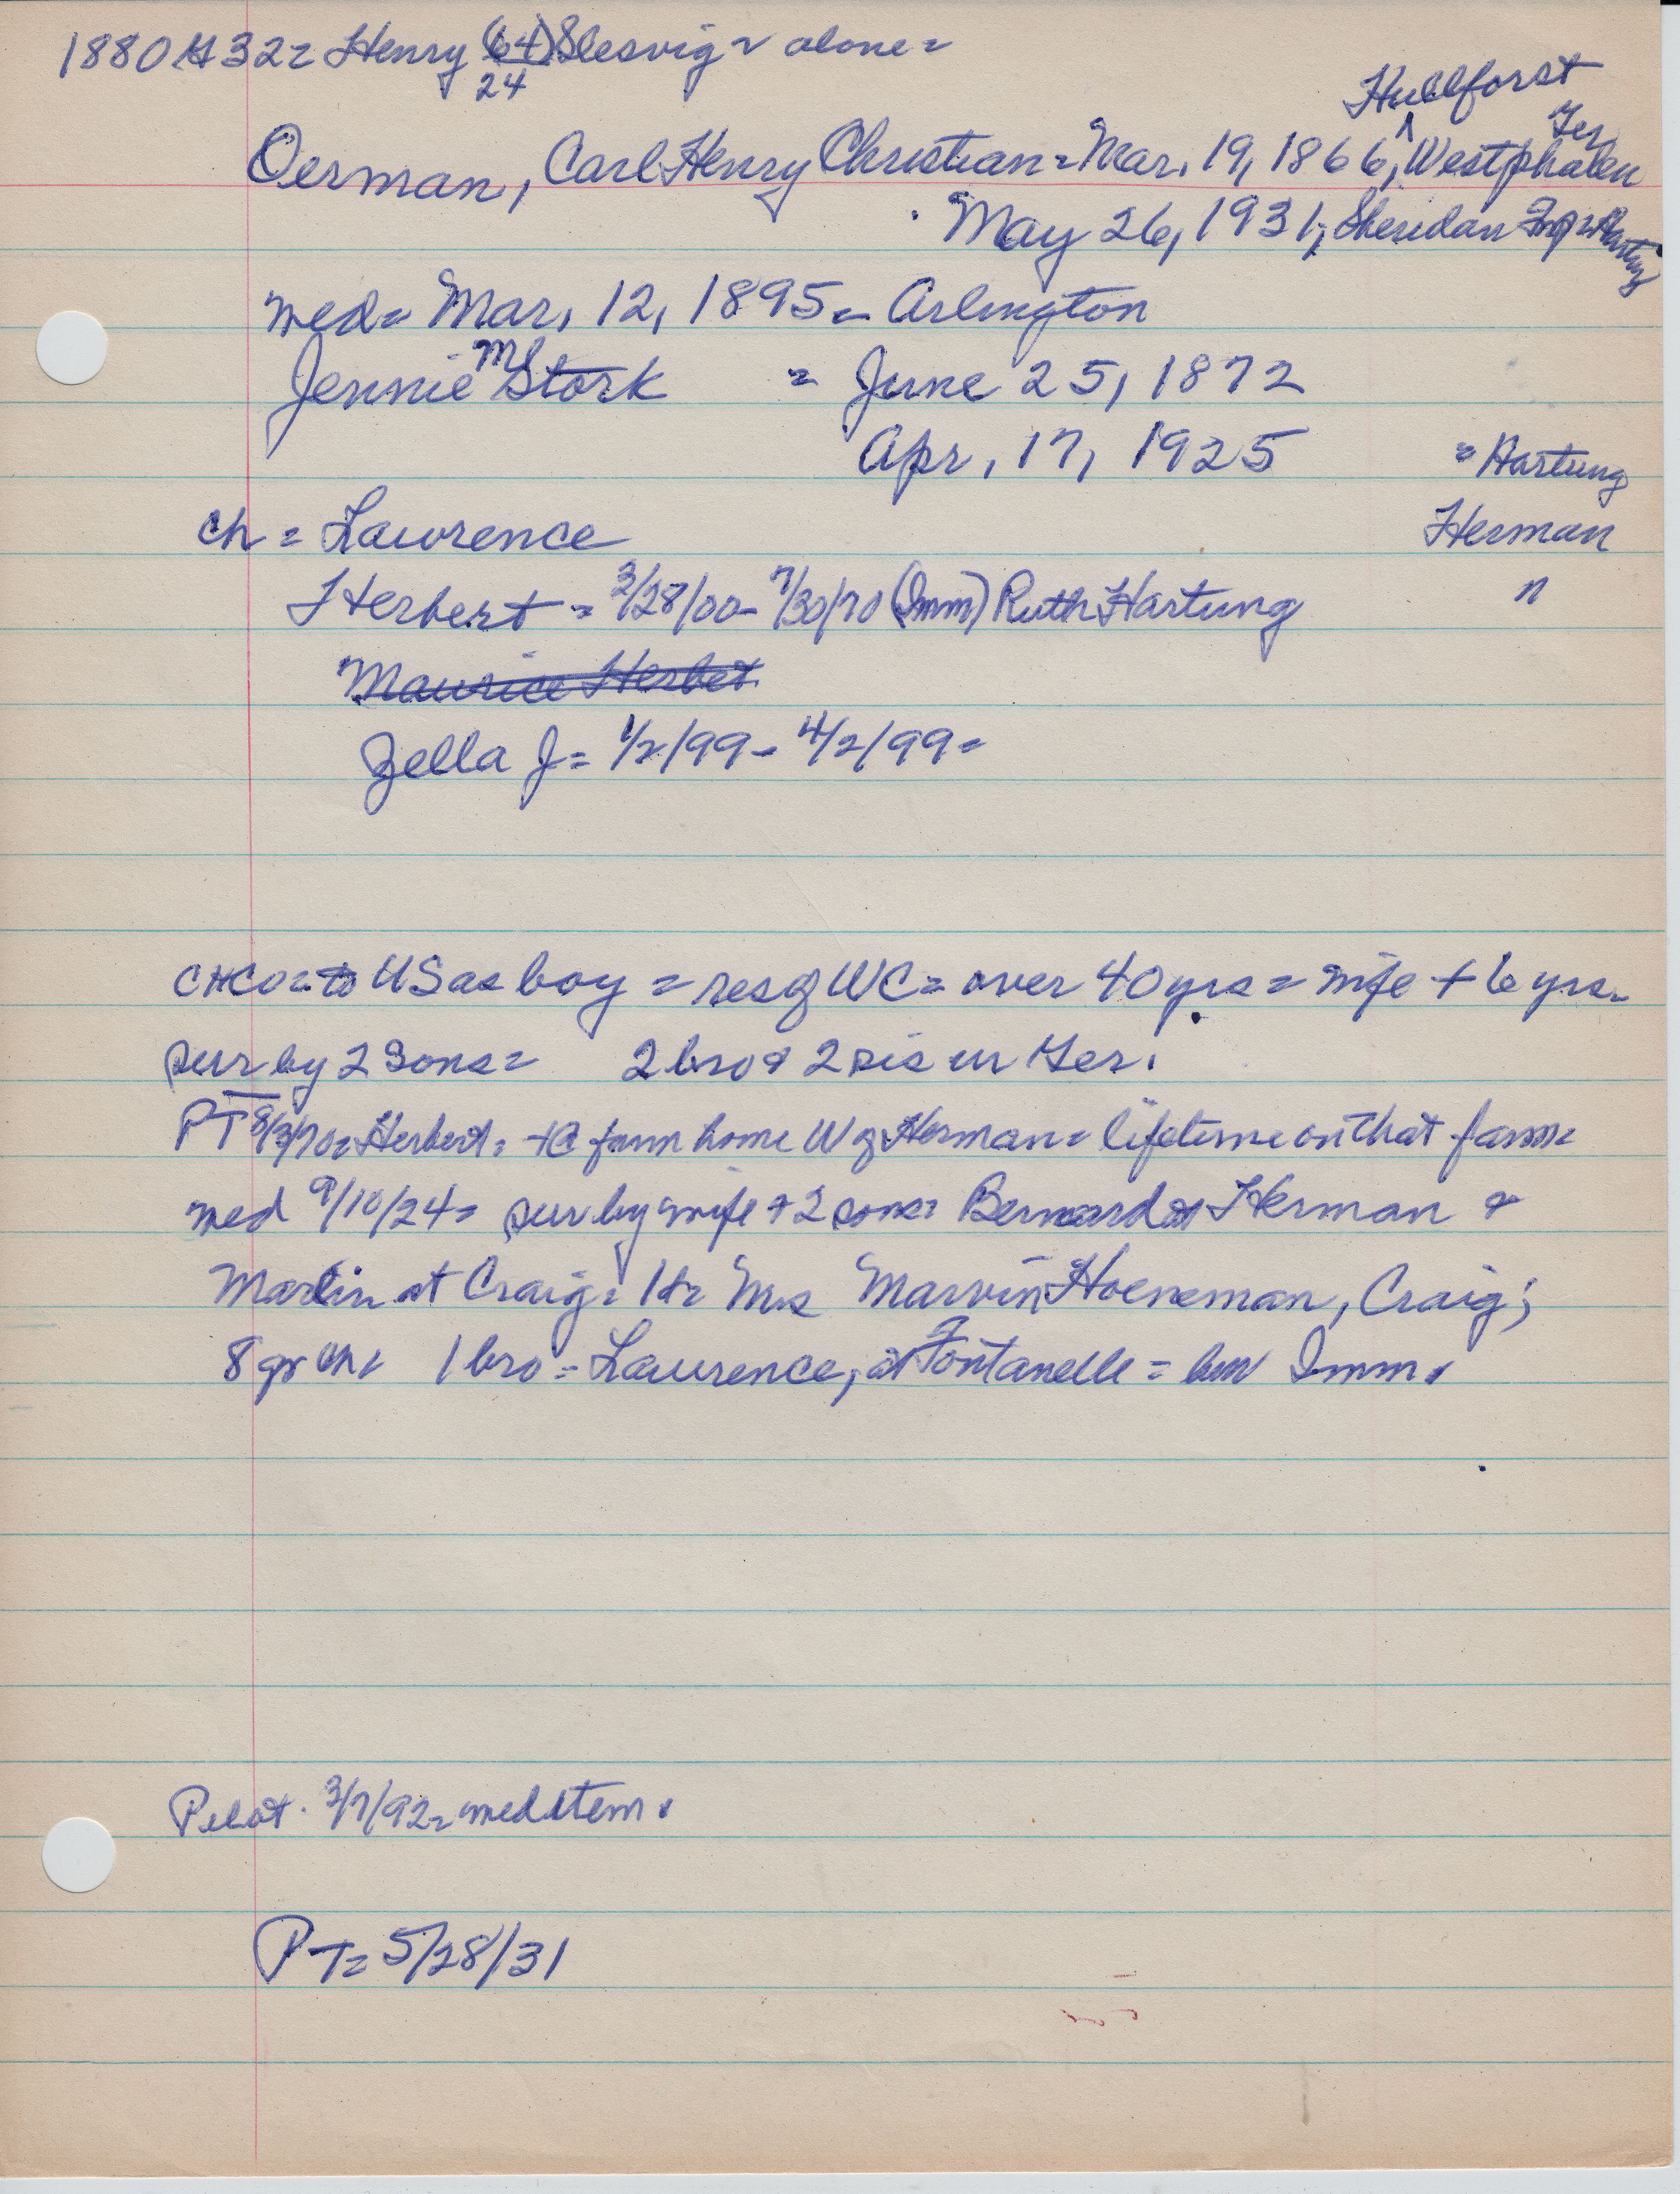 1880 H 32 = Henry (64) Slesvig = alone =
24
Hullforst
Ger
Oerman, Carl Henry Christian = Mar. 19, 1866, Westphalen
May 26, 1931, Sheridan Twp = Hartung
wed = Mar. 12, 1895 = Arlington
Jennie M Stork = June 25, 1872
Apr. 17, 1925 = Hartung
ch = Lawrence Herman
Herbert = 3/28/00 - 7/30/70 (Imm) Ruth Hartung "
Maurice Herbet
Zella J = 1/2/99 - 4/2/99 =
CHCO = to US as boy = res of WC = over 40 yrs = wife + 6 yrs =
sur by 2 sons = 2 bro & 2 sis in Ger.
PT 8/3/70 = Herbert = + @ farm home W of Herman = lifetime on that farm =
wed 9/10/24 = sur by wife + 2 sons = Bernard at Herman &
Marlin at Craig = 1 d = Mrs Marvin Hoeneman, Craig;
8 gr ch = 1 bro = Lawrence, at Fontanelle = bur Imm.
Pilot. 3/7/92 = wed item.
PT = 5/28/31